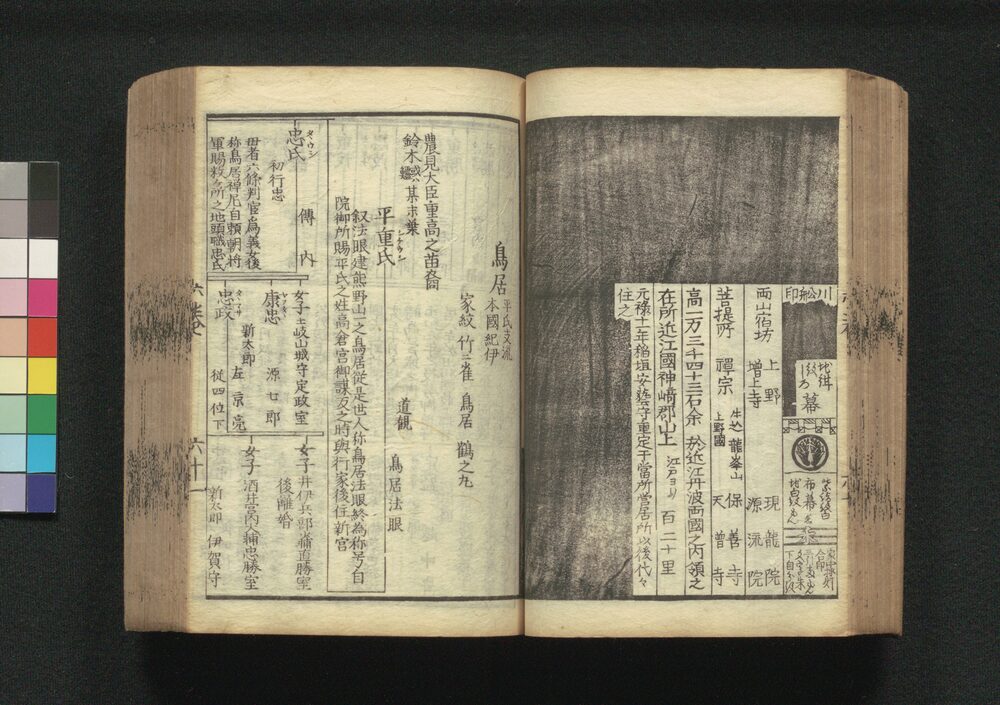 川舩印
地緋
幕
両山宿坊 上野 現龍院
増上寺 源流院
菩提所 禪宗 牛込 龍峯山 保善寺
上野國 天増寺
高一万三千四十三石余 於近江丹波両國之内領之
在所近江國神崎郡山上 江戸ヨリ 百二十里
元禄十一年稲垣安藝守重定于當所營居所以後代々
住之
鳥居 平氏支流
本國紀伊
家紋 竹ニ雀 鳥居 鶴之丸
農見大臣重高之苗裔
鈴木 或ハ 其末葉
平重氏 道觀 鳥居法眼
叙法眼建熊野山一之鳥居従是世人称鳥居法眼終為称号自
院御所賜平氏之姓高倉宮御謀反之時與行家後住新宮
忠氏 タヽウジ 傳内
初行忠
母者六條判官為義女後
称鳥居禅尼自頼朝将
軍賜救命所之地頭職忠氏
女子 土岐山城守定政室
康忠 源七郎
忠政 新太郎 左京亮
従四位下
女子 井伊兵部輔直勝室
後離婚
女子 酒井宮内大輔忠勝室
新太郎 伊賀守
六十一